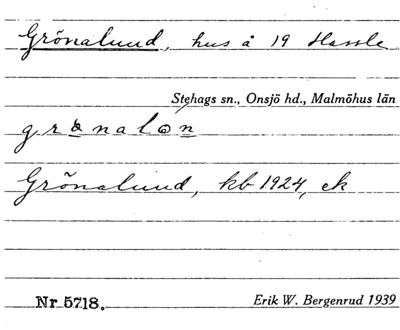 Grönalund, hus å 19 Hassle
Stehags sn., Onsjö hd., Malmöhus län
Grönalund, kb 1924, ek
Nr 5718. Erik W. Bergenrud 1939